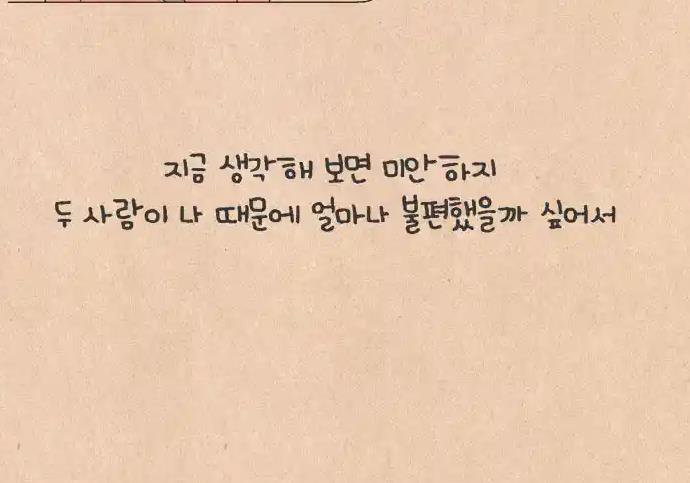 지금 생각해 보면 미안하지
두 사람이 나 때문에 얼마나 불편했을까 싶어서